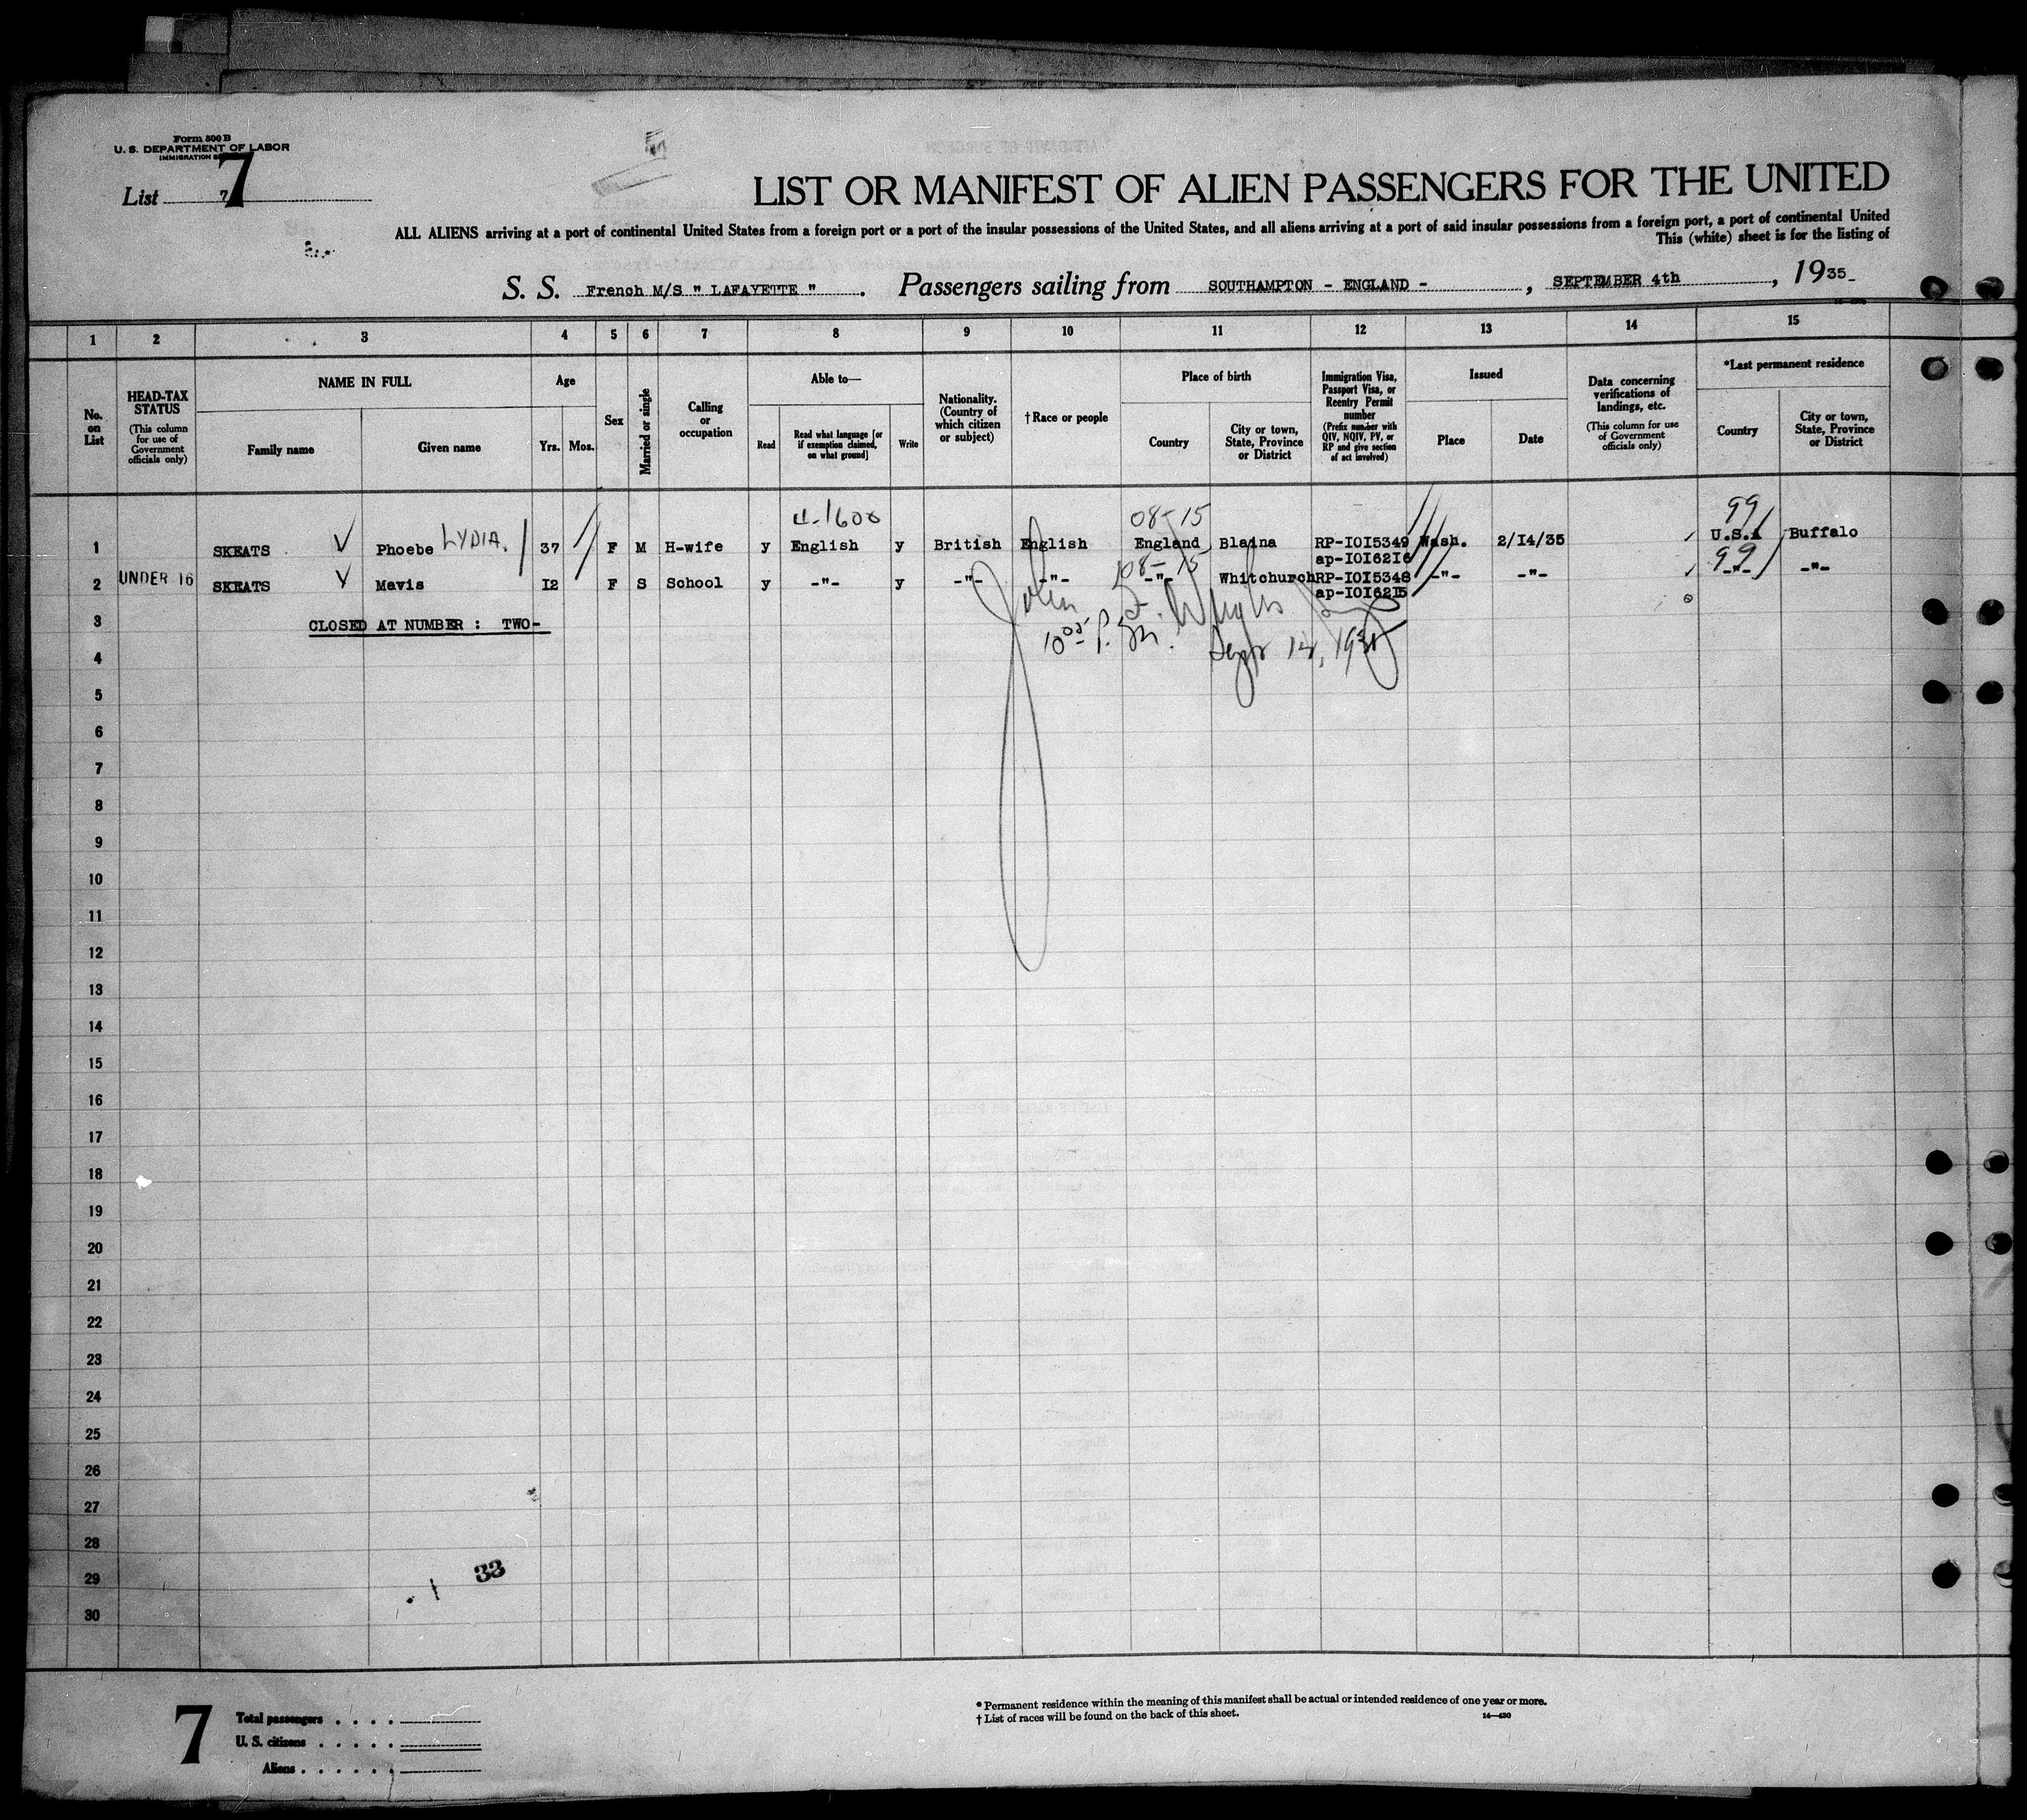 Form 500 B
U. S. DEPARTMENT OF LABOR
IMMIGRATION
List 7
7
LIST OR MANIFEST OF ALIEN PASSENGERS FOR THE UNITED
ALL ALIENS arriving at a port of continental United States from a foreign port or a port of the insular possessions of the United States, and all aliens arriving at a port of said insular possessions from a foreign port, a port of continental United
This (white) sheet is for the listing of
S. S. French M/S " LAFAYETTE " . Passengers sailing from SOUTHAMPTON - ENGLAND - , SEPTEMBER 4th , 1935-
1 2 3 4 5 6 7 8 9 10 11 12 13 14 15
No. on List
HEAD-TAX STATUS
(This column for use of Government officials only)
NAME IN FULL
Family name
Given name
Age
Yrs. Mos.
Sex
Married or single
Calling or occupation
Able to—
Read
Read what language [or if exemption claimed, on what ground]
Write
Nationality. (Country of which citizen or subject)
† Race or people
Place of birth
Country
City or town, State, Province or District
Immigration Visa, Passport Visa, or Reentry Permit number
(Prefix number with QIV, NQIV, PV, or RP and give section of act involved)
Issued
Place
Date
Data concerning verifications of landings, etc.
(This column for use of Government officials only)
*Last permanent residence
Country
City or town, State, Province or District
4-1600 08-15 99
1 SKEATS Phoebe LYDIA. 37 F M H-wife y English y British English England Blaina RP-I0I5349 Wash. 2/I4/35 U.S.A Buffalo
ap-I0I62I6
08-15 99
2 UNDER 16 SKEATS Mavis I2 F S School y -"- y -"- -"- -"- Whitchurch RP-I0I5348 -"- -"- -"- -"-
ap-I0I62I5
3 CLOSED AT NUMBER : TWO-
John
10 P. M. Sept 12, 1935
4
5
6
7
8
9
10
11
12
13
14
15
16
17
18
19
20
21
22
23
24
25
26
27
28
29
30
33
7
Total passengers . . . .
U. S. citizens . . . . .
Aliens . . . . . .
* Permanent residence within the meaning of this manifest shall be actual or intended residence of one year or more.
† List of races will be found on the back of this sheet.
14—430